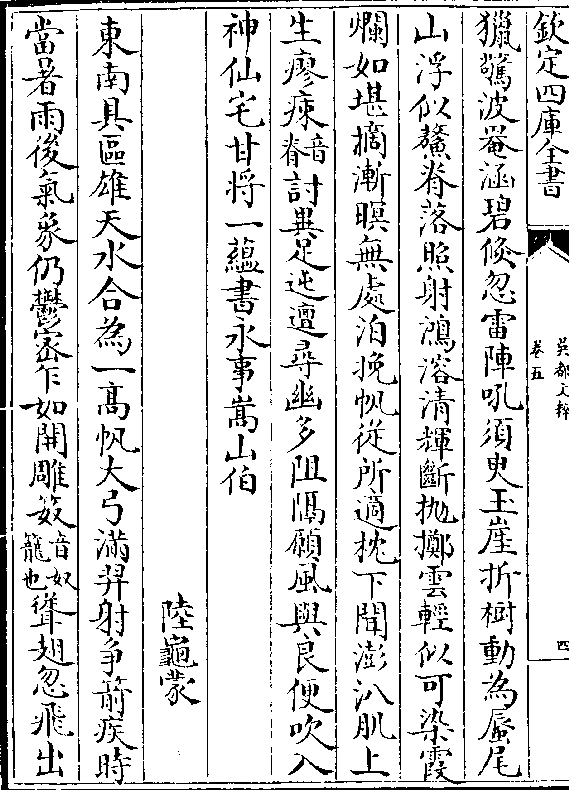 欽定四庫全書
吳都文粹
卷五
四
獵驚波罨涵碧倏忽雷陣吼須臾玉崖折樹動為蜃尾
山浮似鰲脊落照射鴻溶清輝斷拋擲雲輕似可染霞
爛如堪摘漸暝無處泊挽帆從所適枕下聞澎汃肌上
生㾭瘃音脊討異足迍邅尋幽多阻隔願風與良便吹入
神仙宅甘將一蘊書永事嵩山伯
陸龜蒙
東南具區雄天水合為一髙帆大弓滿羿射争箭疾時
當暑雨後氣象仍鬱宻乍如開雕笯音奴籠也聳翅忽飛出